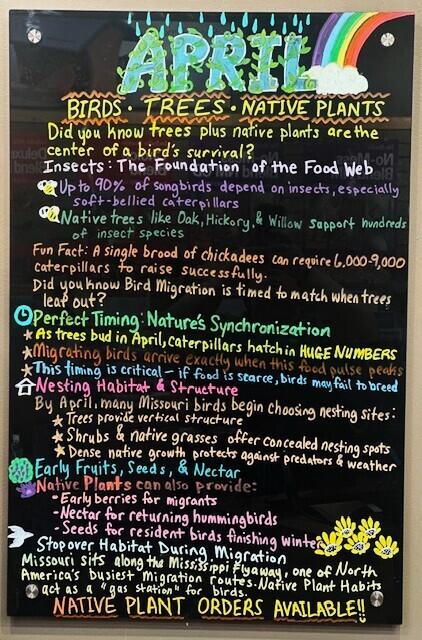 APRIL
BIRDS • TREES • NATIVE PLANTS
Did you know trees plus native plants are the
center of a bird's survival?
Insects: The Foundation of the Food Web
Up to 90% of songbirds depend on insects, especially
soft-bellied caterpillars
Native trees like Oak, Hickory, & Willow support hundreds
of insect species
Fun Fact: A single brood of chickadees can require 6,000-9,000
caterpillars to raise successfully.
Did you know Bird Migration is timed to match when trees
leaf out?
Perfect Timing: Nature's Synchronization
As trees bud in April, caterpillars hatch in HUGE NUMBERS
Migrating birds arrive exactly when this food pulse peaks
This timing is critical – if food is scarce, birds may fail to breed
Nesting Habitat & Structure
By April, many Missouri birds begin choosing nesting sites:
Trees provide vertical structure
Shrubs & native grasses offer concealed nesting spots
Dense native growth protects against predators & weather
Early Fruits, Seeds, & Nectar
Native Plants can also provide:
• Early berries for migrants
• Nectar for returning hummingbirds
• Seeds for resident birds finishing winter
Stopover Habitat During Migration
Missouri sits along the Mississippi Flyaway, one of North
America's busiest Migration routes. Native Plant Habits
act as a "gas station" for birds.
NATIVE PLANT ORDERS AVAILABLE!!